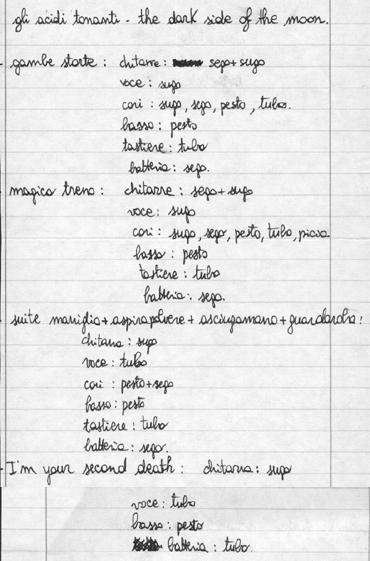 gli acidi tonanti - the dark side of the moon.
- gambe storte : chitarre : sego + sugo
voce : sugo
cori : sugo, sego, pesto, tubo.
basso : pesto
tastiere : tubo
batteria : sego.
- magico treno : chitarre : sego + sugo
voce : sugo
cori : sugo, sego, pesto, tubo,
basso : pesto
tastiere : tubo
batteria : sego.
- suite maniglia + aspirapolvere + asciugamano + guardaroba :
chitarra : sugo
voce : tubo
cori : pesto + sego
basso : pesto
tastiere : tubo
batteria : sego.
- I'm your second death : chitarra : sugo
voce : tubo
basso : pesto
batteria : tubo.